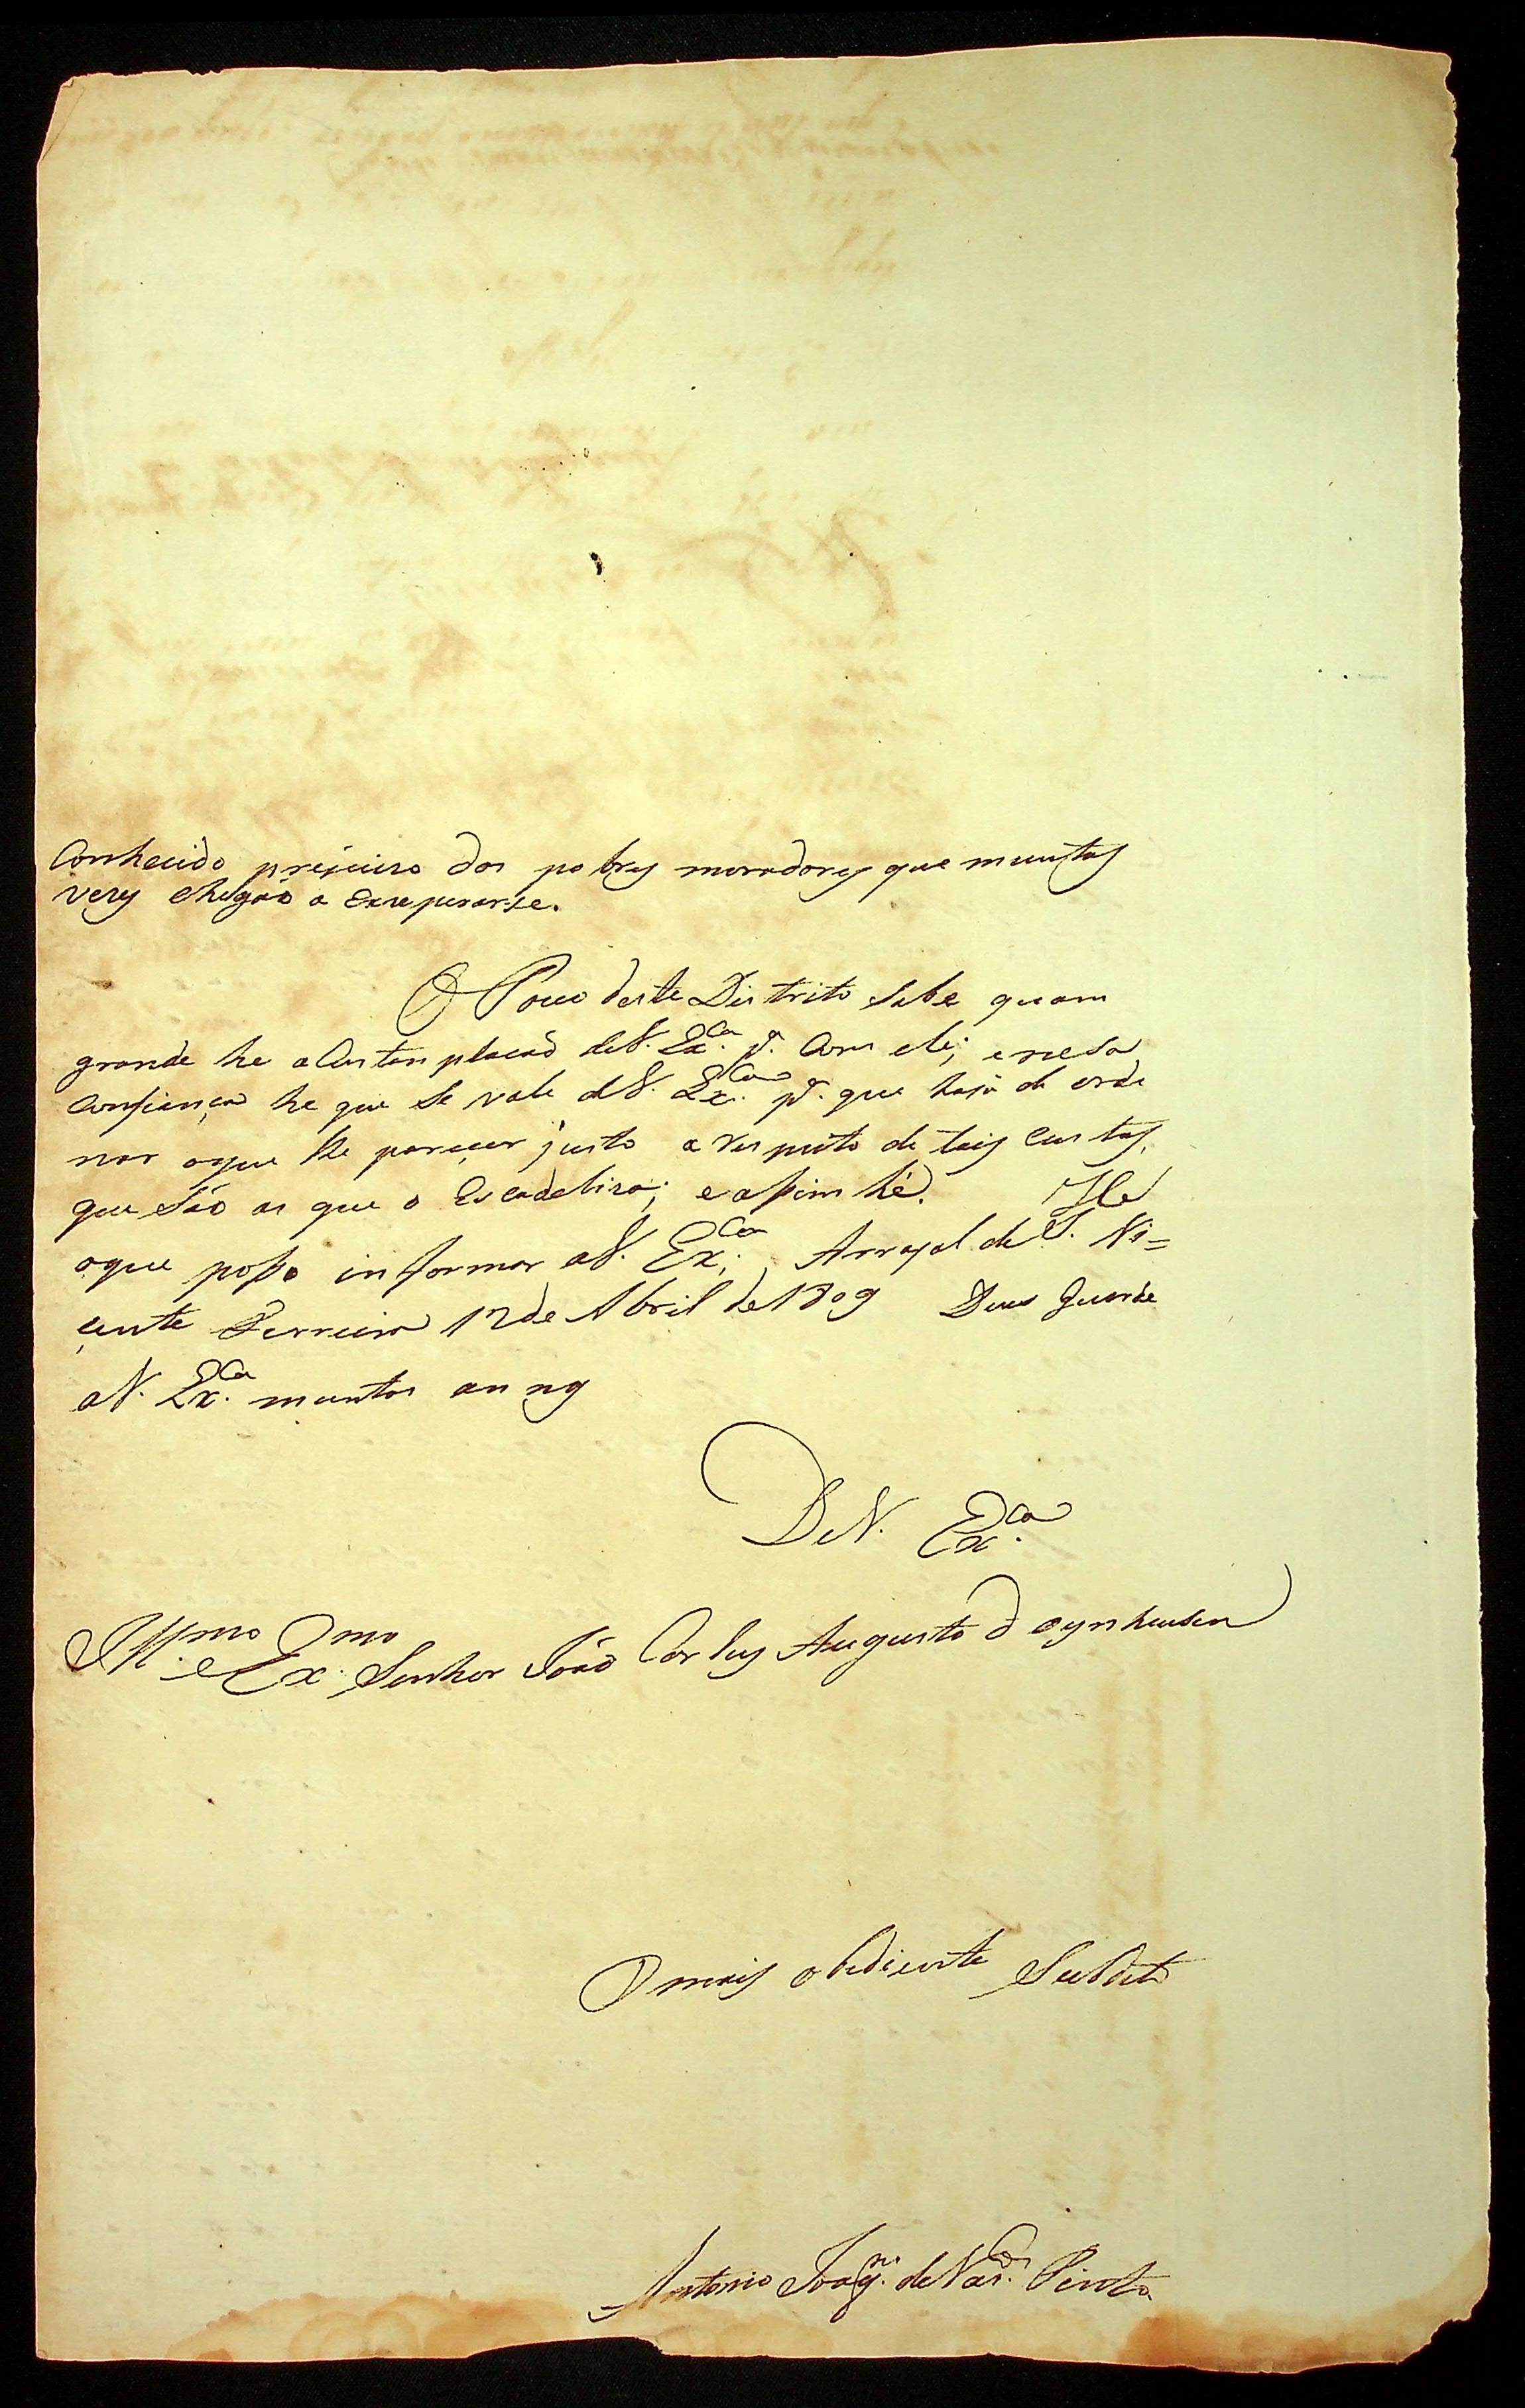 Conhecido prejuizo dos pobres moradores que muntas
vezes chegão a dezesperarse.
O Povo deste Distrito sabe quam
grande he a Contenplacaõ de V. Ex.ca p.a Com ele; e nesa
Confiança he que se vale de V. Ex.ca p.a que haja de orde
nar oque lhe pareçer justo a Respeito de tais Custas,
que são as que o Escadeliza; e asim hé. He
oque poso informar a V. Ex.ca, Arrayal de S. Vi=
çente Ferreira 12 de Abril de 1809 Deus Guarde
a V. Ex.ca muntos annos
De V. Ex.ca
Ill.mo e Ex.mo Senhor João Carlos Augusto d Oeynhausen
O mais obediente Subdito
Antonio Joaq.m de Vas.cos Pinto